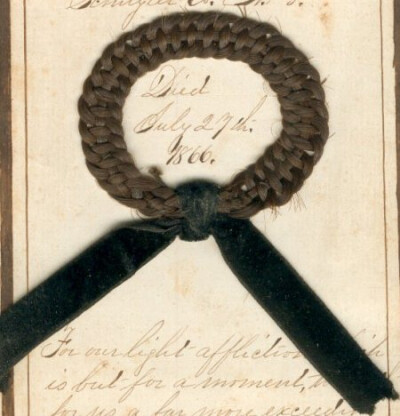 Schuyler Co. N. Y.
Died
July 27th.
1866.
For our light affliction
is but for a moment,
for us a far more exceed